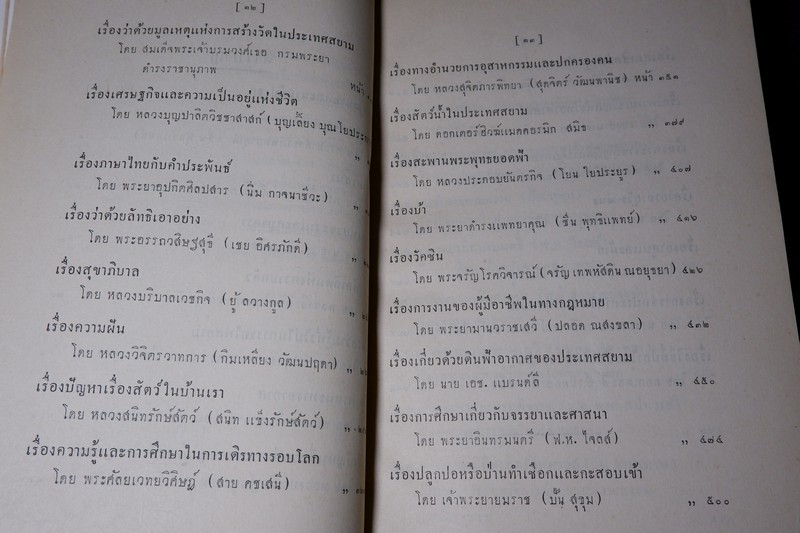 [ ๑๒ ]
เรื่องว่าด้วยมูลเหตุแห่งการสร้างวัดในประเทศสยาม
โดย สมเด็จพระเจ้าบรมวงศ์เธอ กรมพระยา
ดำรงราชานุภาพ
หน้า
เรื่องเศรษฐกิจและความเป็นอยู่แห่งชีวิต
โดย หลวงบุญปาลิตวิชชาสาสก์ (บุญเลี้ยง บุณโยประ
เรื่องภาษาไทยกับคำประพันธ์
โดย พระยาอุปกิตศิลปสาร (นิ่ม กาจนาชีวะ)
เรื่องว่าด้วยลัทธิเอาอย่าง
โดย พระอรรถวสิษฐสุธี (เชย อิศรภักดี)
เรื่องสุขาภิบาล
โดย หลวงบริบาลเวชกิจ (ยู้ ลวางกูล)
เรื่องความฝัน
โดย หลวงวิจิตรวาทการ (กิมเหลียง วัฒนปฤดา)
เรื่องปัญหาเรื่องสัตว์ในบ้านเรา
โดย หลวงสนิทรักษ์สัตว์ (สนิท แข็งรักษ์สัตว์)
เรื่องความรู้และการศึกษาในการเดิรทางรอบโลก
โดย พระศัลยเวทยวิศิษฎ์ (สาย คชเสนี)
[ ๑๓ ]
เรื่องทางอำนวยการอุสาหกรรมและปกครองคน
โดย หลวงสุจิตภารพิทยา (สุดจิตร์ วัฒนพานิช) หน้า ๓๕๑
เรื่องสัตว์น้ำในประเทศสยาม
โดย ดอกเตอร์ฮิวฆ์แมคคอรมิก สมิธ ,, ๓๗๙
เรื่องสะพานพระพุทธยอดฟ้า
โดย หลวงประกอบยันตรกิจ (โบน ใบประยูร) ,, ๔๐๗
เรื่องบ้า
โดย พระยาดำรงแพทยาคุณ (ชื่น พุทธิแพทย์) ,, ๔๑๖
เรื่องวัคซิน
โดย พระจรัญโรควิจารณ์ (จรัญ เทพหัสดิน ณอยุธยา) ๔๒๖
เรื่องการงานของผู้มีอาชีพในทางกฎหมาย
โดย พระยามานวราชเสวี (ปลอด ณสงขลา) ,, ๔๓๒
เรื่องเกี่ยวด้วยดินฟ้าอากาศของประเทศสยาม
โดย นาย เอช. แบรนด์ลี ,, ๔๕๐
เรื่องการศึกษาเกี่ยวกับจรรยาและศาสนา
โดย พระยาอินทรมนตรี (ฟ.ห. ใจลส์) ,, ๔๗๔
เรื่องปลูกปอหรือป่านทำเชือกและกะสอบเข้า
โดย เจ้าพระยายมราช (ปั้น สุขุม) ,, ๕๐๐